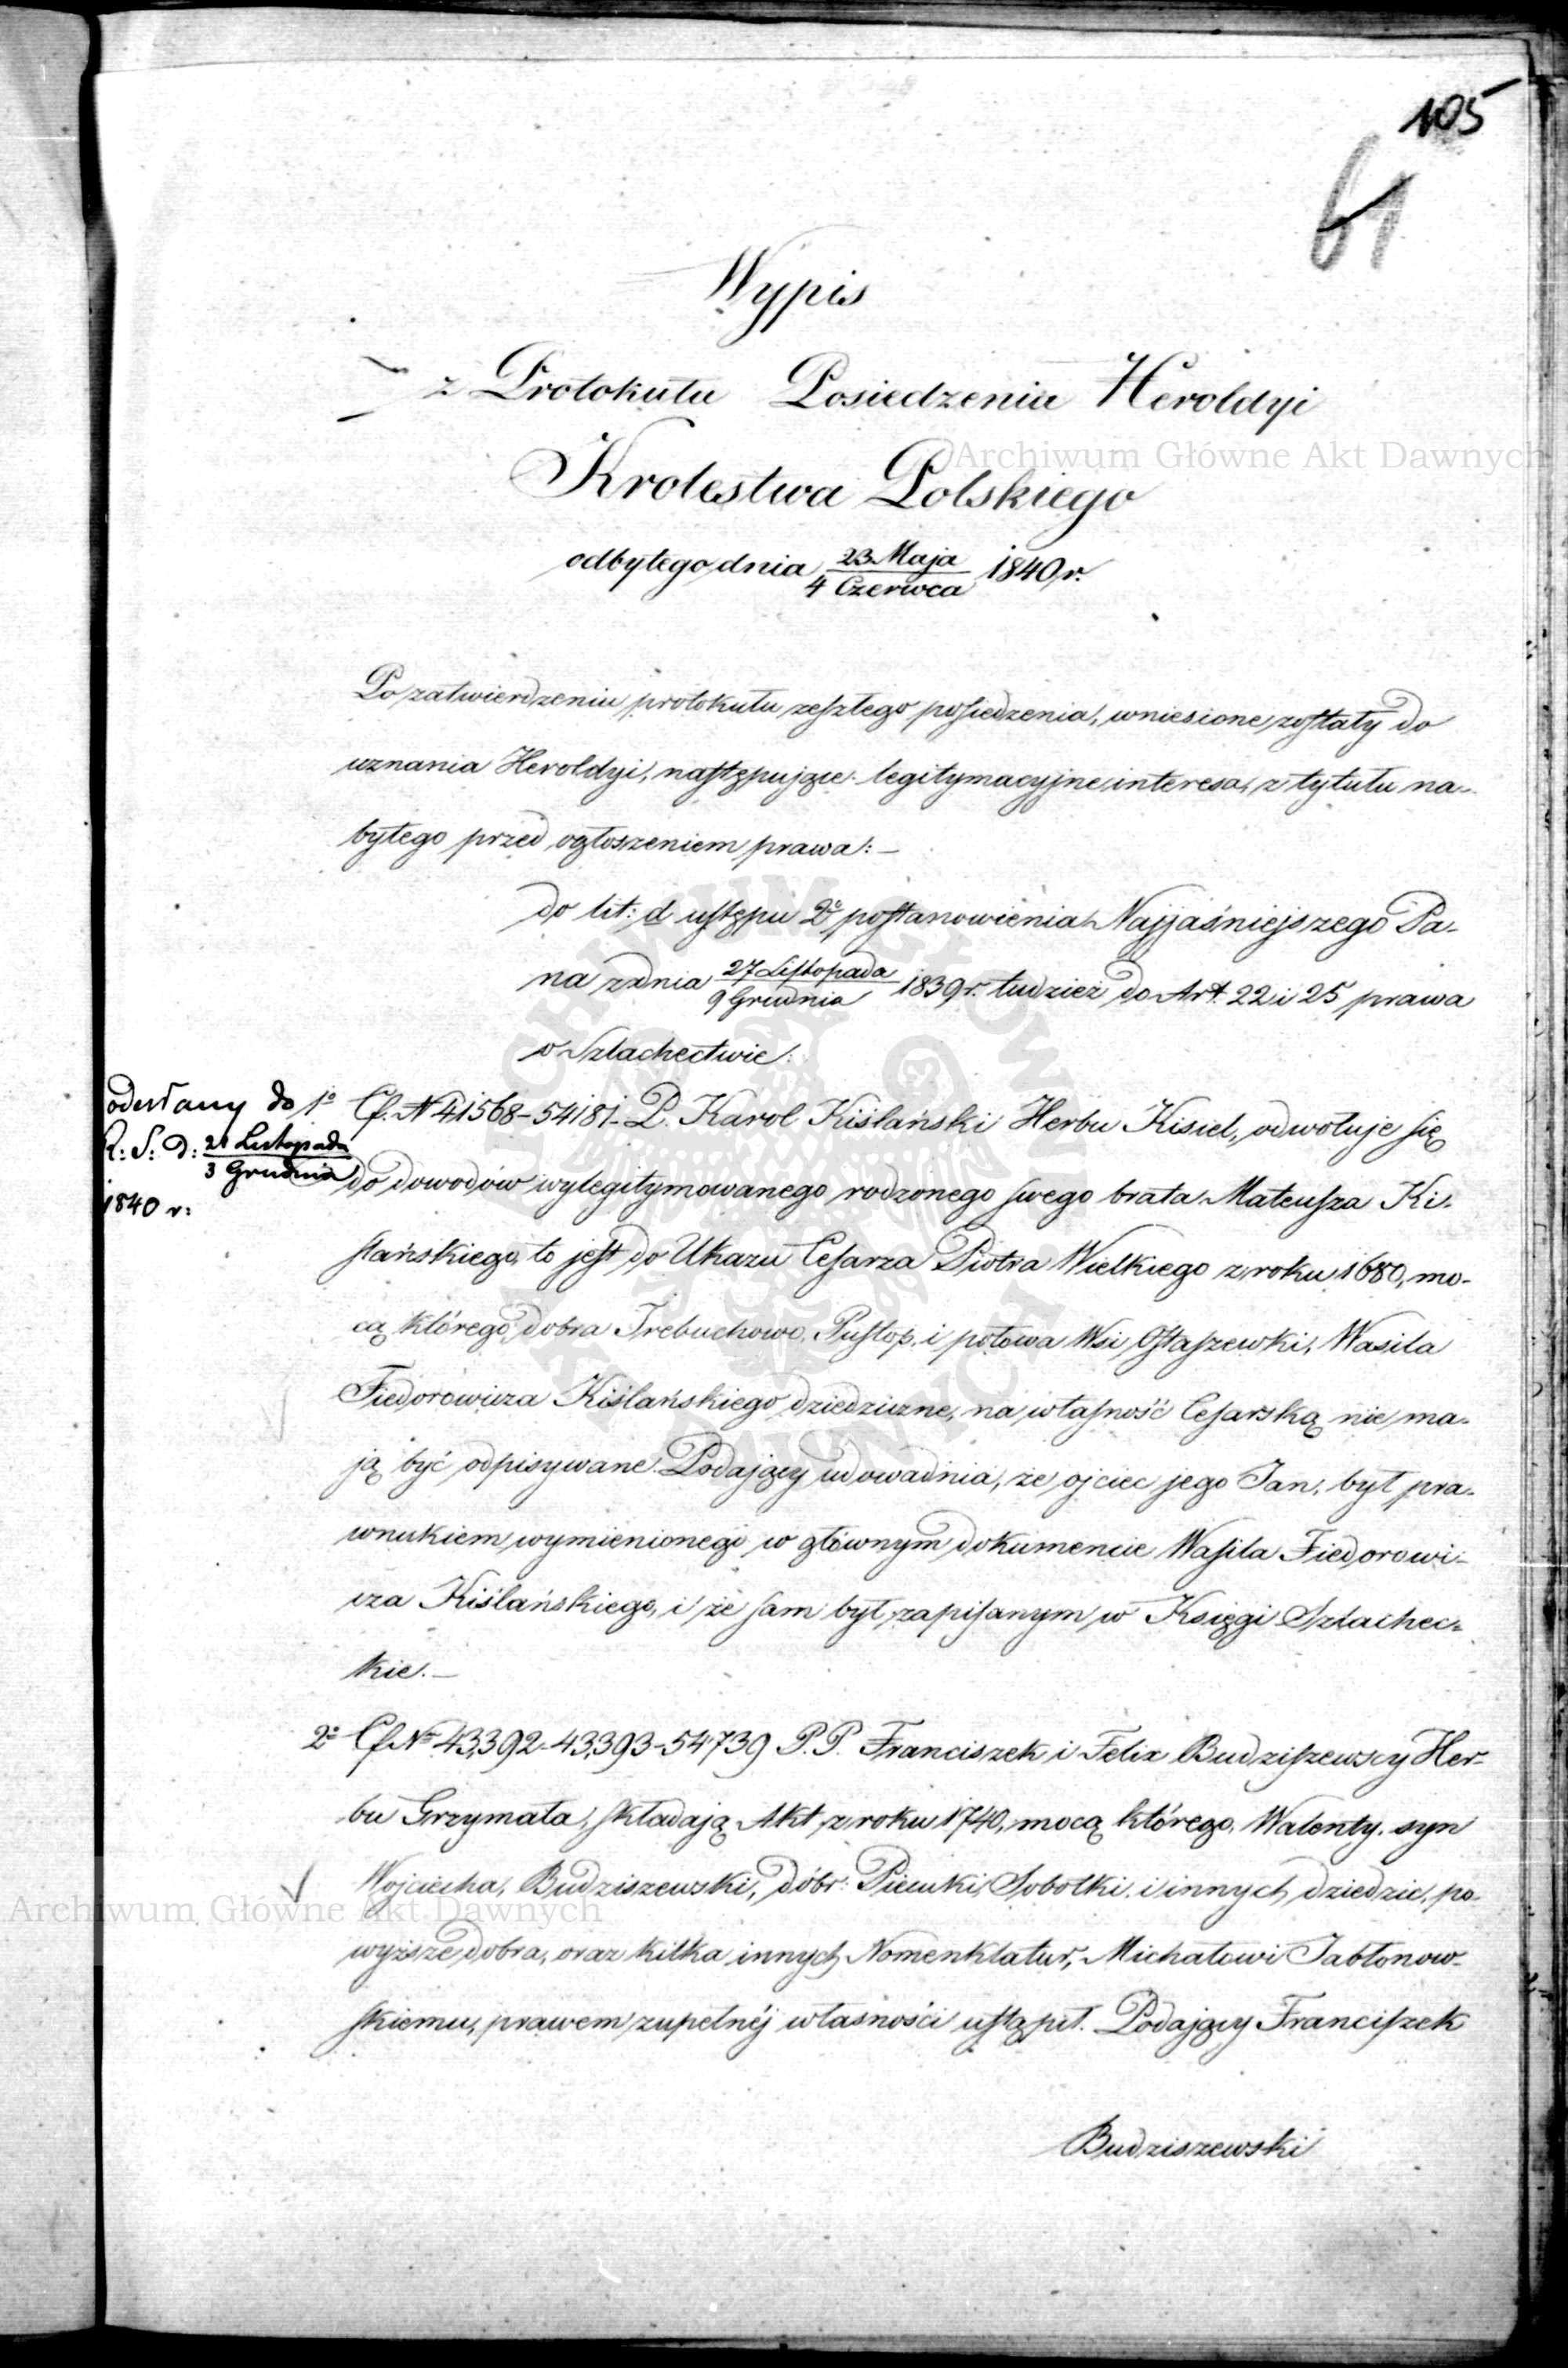 105
61
Wypis
z Protokułu Posiedzenia Heroldyi
Krolestwa Polskiego
odbytego dnia 23 Maja / 4 Czerwca 1840 r.
Po zatwierdzeniu protokułu zeszłego posiedzenia, wniesione zostały do
uznania Heroldyi, następujące legitymacyjne interesa, z tytułu na-
bytego przed ogłoszeniem prawa: –
do lit: d ustępu 2º postanowienia Najjaśniejszego Pa-
na z dnia 27 Listopada / 9 Grudnia 1839 r. tudzież do Art. 22 i 25 prawa
o Szlachectwie:
odesłany do
R: S: D: 21 Listopada / 3 Grudnia
1840 r:
1º Cf. N 41568–54181. P. Karol Kiślański Herbu Kisiel, odwołuje się
do dowodów wylegitymowanego rodzonego swego brata Mateusza Ki-
slańskiego, to jest do Ukazu Cesarza Piotra Wielkiego z roku 1680, mo-
cą którego, dobra Trebuchowo, Pustop. i połowa Wsi Ostaszewki, Wasila
Fiedorowicza Kiślańskiego dziedziczne, na własność Cesarską nie ma-
ją być odpisywane. Podający udowadnia, że ojciec jego Jan, był pra-
wnukiem wymienionego w głównym dokumencie Wasila Fiedorowi-
cza Kiślańskiego, i że sam był zapisanym w Księgi Szlachec-
kie. –
2º Cf Nº 43,392–43,393–54739 P.P. Franciszek i Felix Budziszewscy Her-
bu Grzymała, składają Akt z roku 1740, mocą którego, Walenty, syn
Wojciecha, Budziszewski, dóbr: Pieńki, Sobolki, i innych dziedzic, po-
wyższe dobra, oraz kilka innych Nomenklatur, Michałowi Jabłonow-
skiemu, prawem zupełnéj własności ustąpił. Podający Franciszek
Budziszewski
Archiwum Główne Akt Dawnych
Archiwum Główne Akt Dawnych